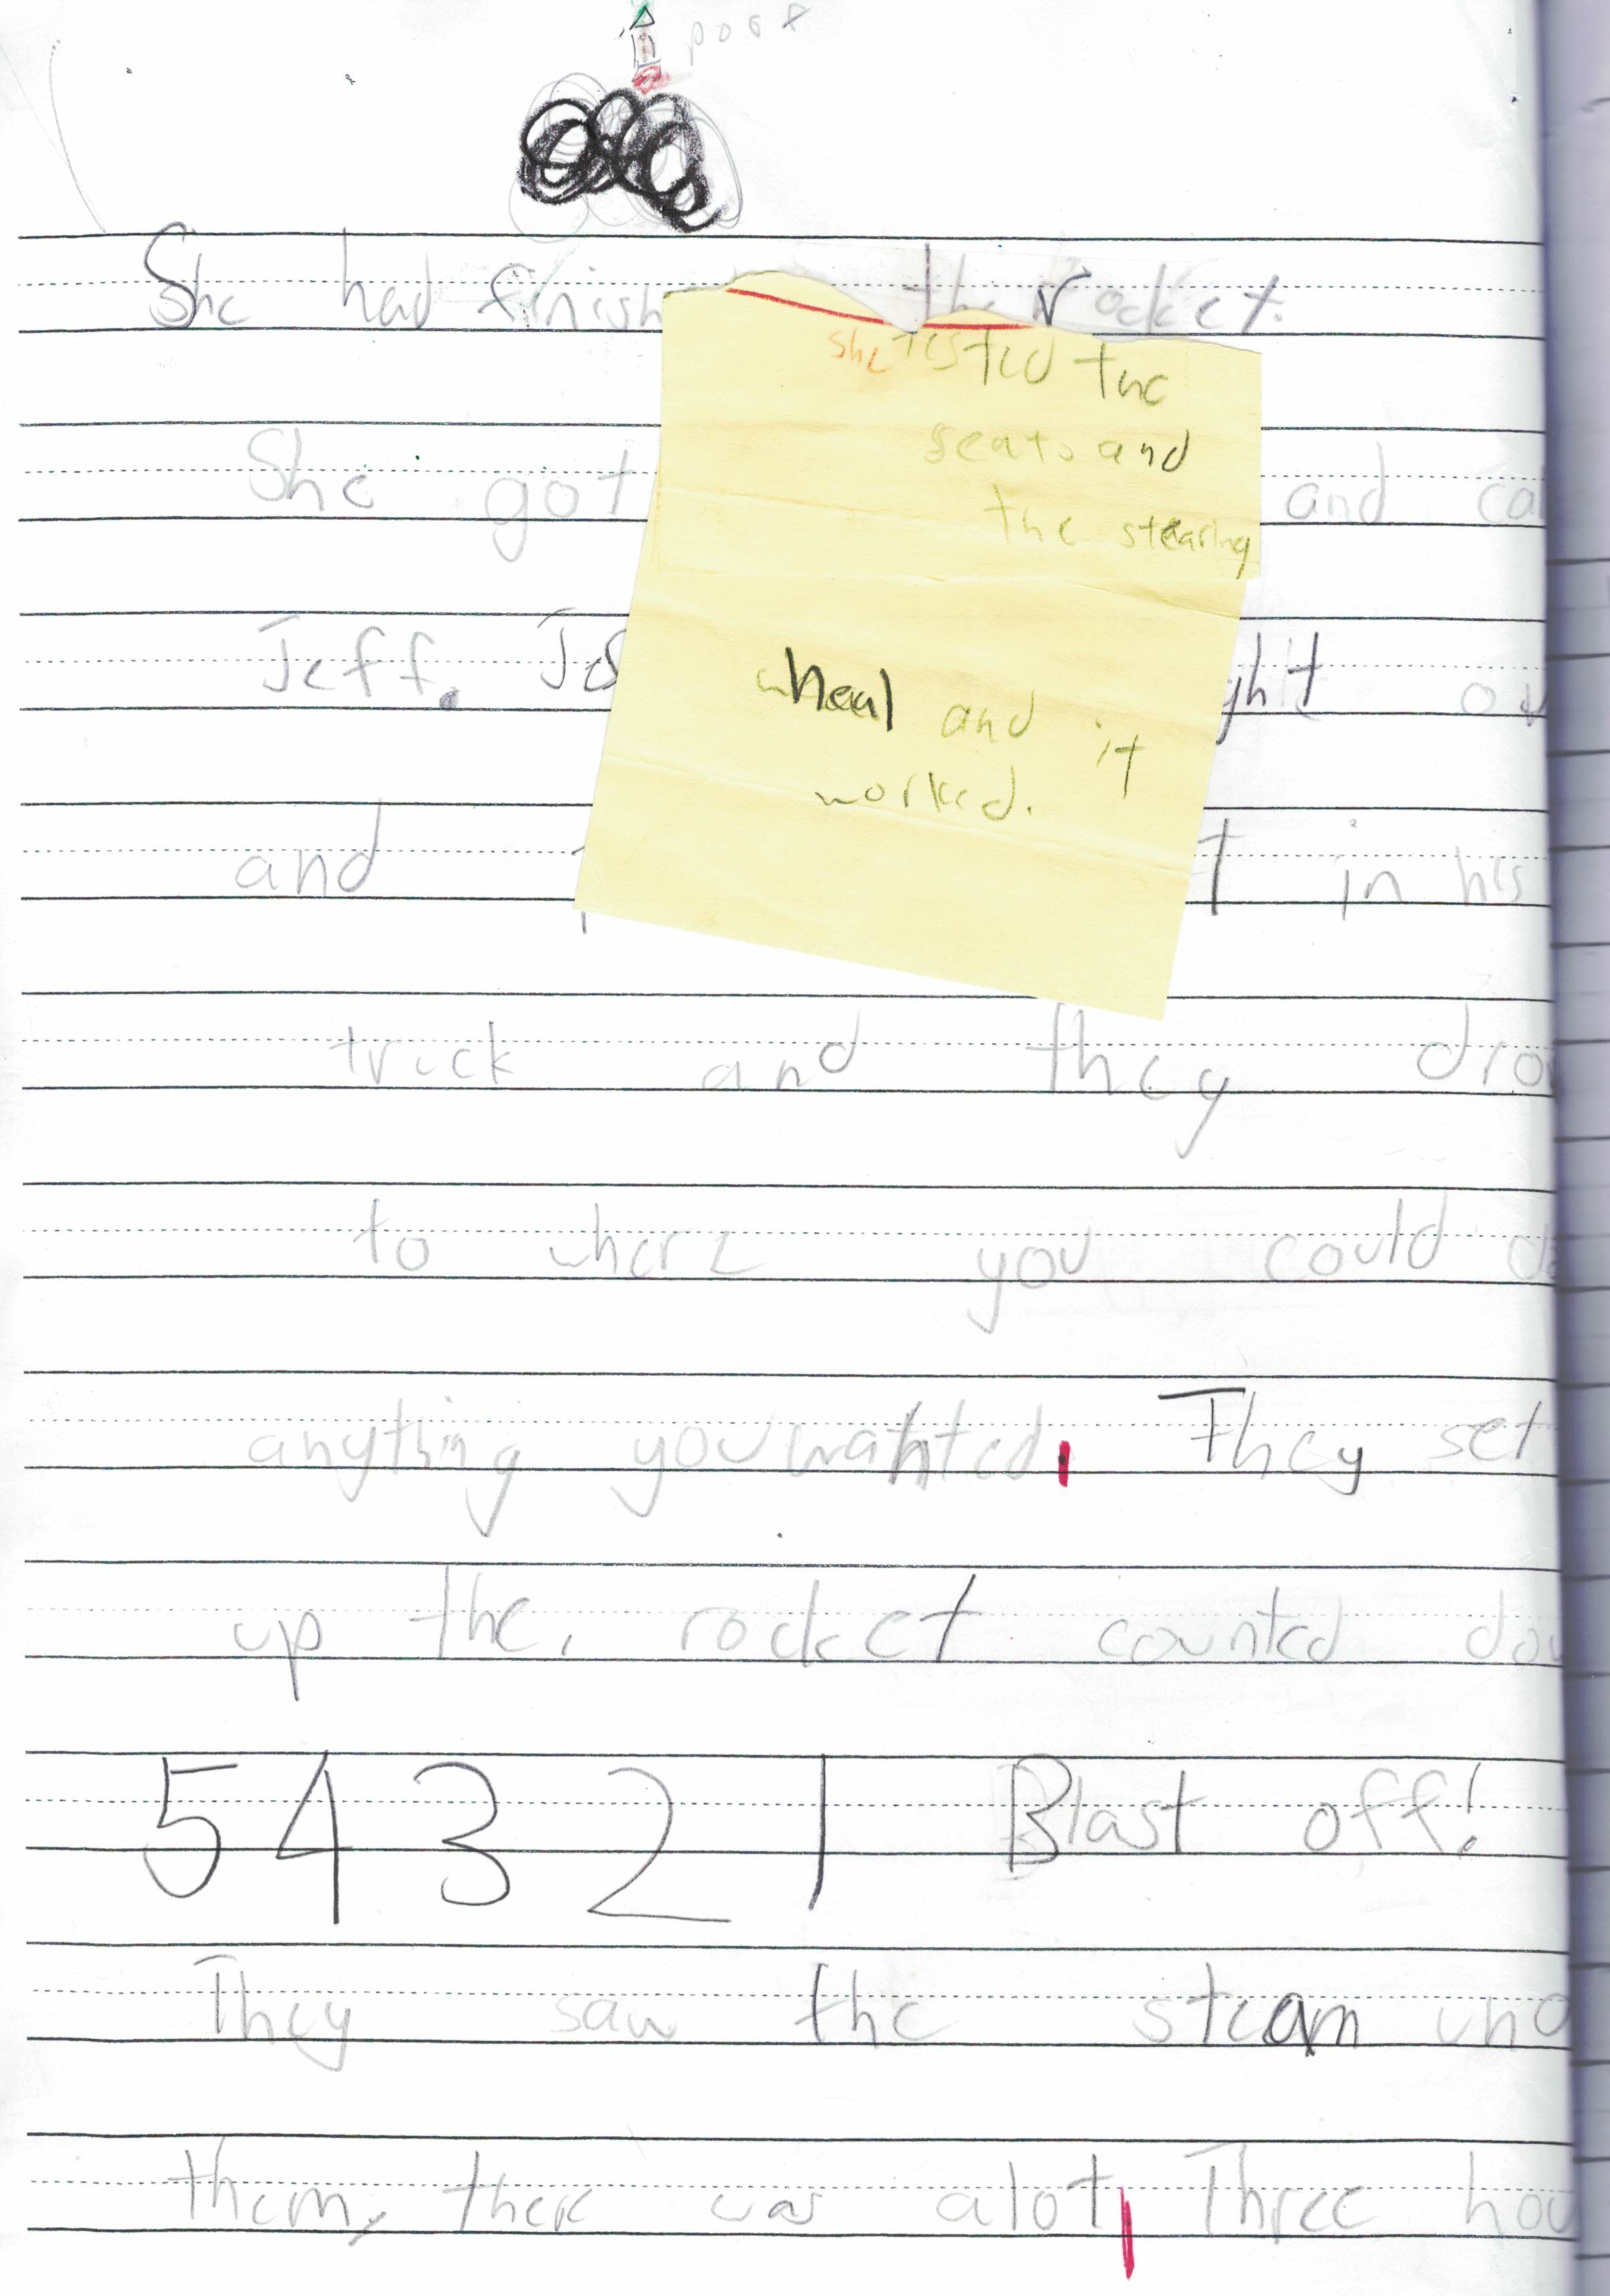 She had finish the rocket.
she tested the
seats and
the stearing
wheal and it
worked.
She got and
Jeff.
and in his
truck and they
to where you could
anything you wanted. They set
up the rocket counted
5 4 3 2 1 Blast off!
They saw the steam
them, there was alot. Three